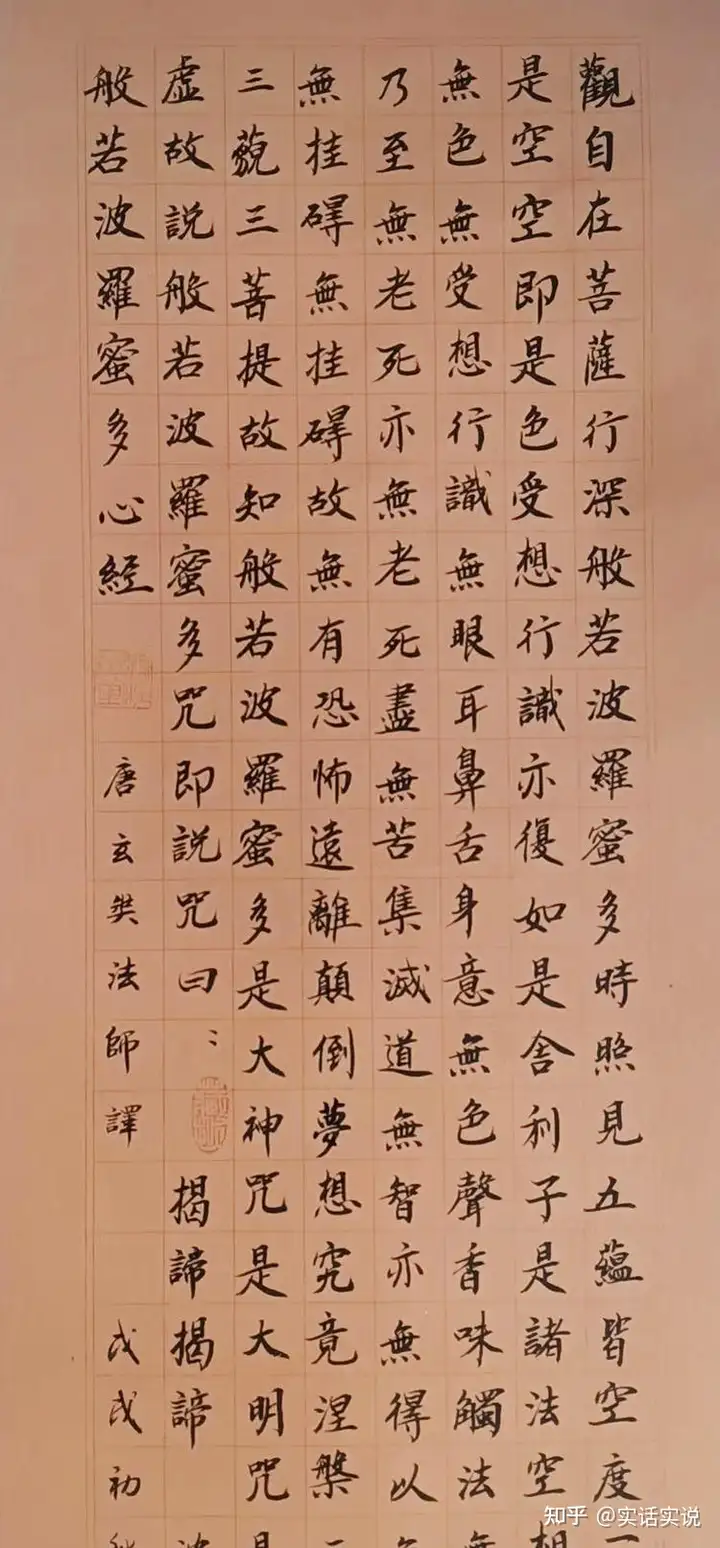 觀自在菩薩行深般若波羅蜜多時照見五蘊皆空度一
是空空即是色受想行識亦復如是舍利子是諸法空相
無色無受想行識無眼耳鼻舌身意無色聲香味觸法無
乃至無老死亦無老死盡無苦集滅道無智亦無得以無
無挂碍無挂碍故無有恐怖遠離顛倒夢想究竟涅槃
三藐三菩提故知般若波羅蜜多是大神咒是大明咒是
虛故說般若波羅蜜多咒即說咒曰 揭諦揭諦 波
般若波羅蜜多心經 唐玄奘法師譯 戊戌初
知乎 @实话实说